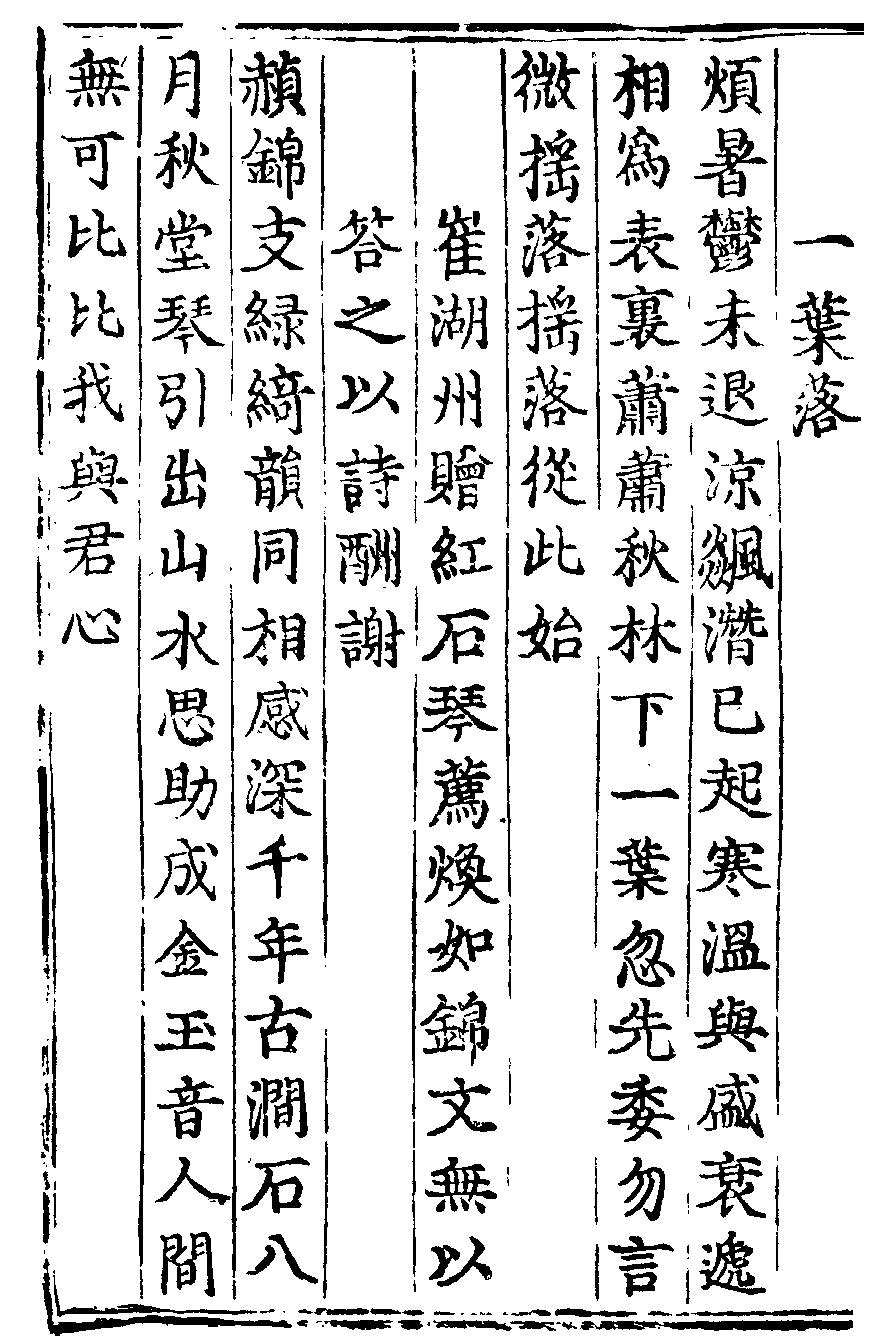 一葉落
煩暑鬱未退涼飊潛已起寒溫與盛衰遞
相爲表裏蕭蕭秋林下一葉忽先委勿言
微揺落揺落從此始
崔湖州贈紅石琴薦煥如錦文無以
答之以詩酬謝
赬錦支緑綺韻同相感深千年古澗石八
月秋堂琴引出山水思助成金玉音人間
無可比比我與君心